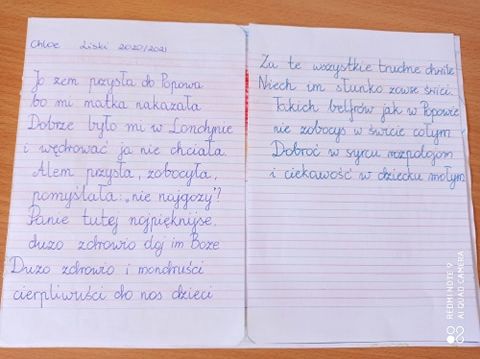 Chloe Liski 2020/2021
Jo żem przysła do Popowa
bo mi matka nakazała
Dobrze było mi w Londynie
i wędrować ja nie chciała.
Alem przysła, zobocyła,
pomyślała: „nie najgozy"?
Panie tutej najpięknijse,
duzo zdrowio doj im Boze
Duzo zdrowio i mondruści
cierpliwuści do nos dzieci
Za te wszystkie trudne chwile
Niech im słunko zawse świci.
Takich belfrów jak w Popowie
nie zobocys w świcie cołym
Dobroć w syrcu rozpolajom
i ciekawość w dziecku mołym.
REDMI NOTE 9
AI QUAD CAMERA